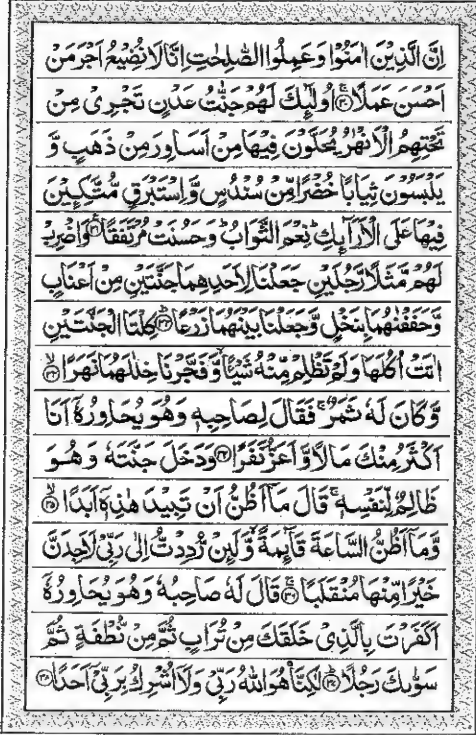 اِنَّ الَّذِيْنَ اٰمَنُوْا وَعَمِلُوا الصّٰلِحٰتِ اِنَّا لَا نُضِيْعُ اَجْرَ مَنْ
اَحْسَنَ عَمَلًا ۚ﴿۳۰﴾ اُولٰٓئِكَ لَهُمْ جَنّٰتُ عَدْنٍ تَجْرِيْ مِنْ
تَحْتِهِمُ الْاَنْهٰرُ يُحَلَّوْنَ فِيْهَا مِنْ اَسَاوِرَ مِنْ ذَهَبٍ وَّ
يَلْبَسُوْنَ ثِيَابًا خُضْرًا مِّنْ سُنْدُسٍ وَّاِسْتَبْرَقٍ مُّتَّكِـِٕيْنَ
فِيْهَا عَلَى الْاَرَآئِكِ ؕ نِعْمَ الثَّوَابُ ؕ وَحَسُنَتْ مُرْتَفَقًا ﴿۳۱﴾ وَاضْرِبْ
لَهُمْ مَّثَلًا رَّجُلَيْنِ جَعَلْنَا لِاَحَدِهِمَا جَنَّتَيْنِ مِنْ اَعْنَابٍ
وَّحَفَفْنٰهُمَا بِنَخْلٍ وَّجَعَلْنَا بَيْنَهُمَا زَرْعًا ؕ﴿۳۲﴾ كِلْتَا الْجَنَّتَيْنِ
اٰتَتْ اُكُلَهَا وَلَمْ تَظْلِمْ مِّنْهُ شَيْـًٔا ۙ وَّفَجَّرْنَا خِلٰلَهُمَا نَهَرًا ۙ﴿۳۳﴾
وَّكَانَ لَهٗ ثَمَرٌ ۚ فَقَالَ لِصَاحِبِهٖ وَهُوَ يُحَاوِرُهٗۤ اَنَا
اَكْثَرُ مِنْكَ مَالًا وَّاَعَزُّ نَفَرًا ﴿۳۴﴾ وَدَخَلَ جَنَّتَهٗ وَهُوَ
ظَالِمٌ لِّنَفْسِهٖ ۚ قَالَ مَاۤ اَظُنُّ اَنْ تَبِيْدَ هٰذِهٖۤ اَبَدًا ۙ﴿۳۵﴾
وَّمَاۤ اَظُنُّ السَّاعَةَ قَآئِمَةً ۙ وَّلَئِنْ رُّدِدْتُّ اِلٰى رَبِّيْ لَاَجِدَنَّ
خَيْرًا مِّنْهَا مُنْقَلَبًا ۚ﴿۳۶﴾ قَالَ لَهٗ صَاحِبُهٗ وَهُوَ يُحَاوِرُهٗۤ
اَكَفَرْتَ بِالَّذِيْ خَلَقَكَ مِنْ تُرَابٍ ثُمَّ مِنْ نُّطْفَةٍ ثُمَّ
سَوّٰىكَ رَجُلًا ؕ﴿۳۷﴾ لٰكِنَّا۠ هُوَ اللّٰهُ رَبِّيْ وَلَاۤ اُشْرِكُ بِرَبِّيْۤ اَحَدًا ﴿۳۸﴾